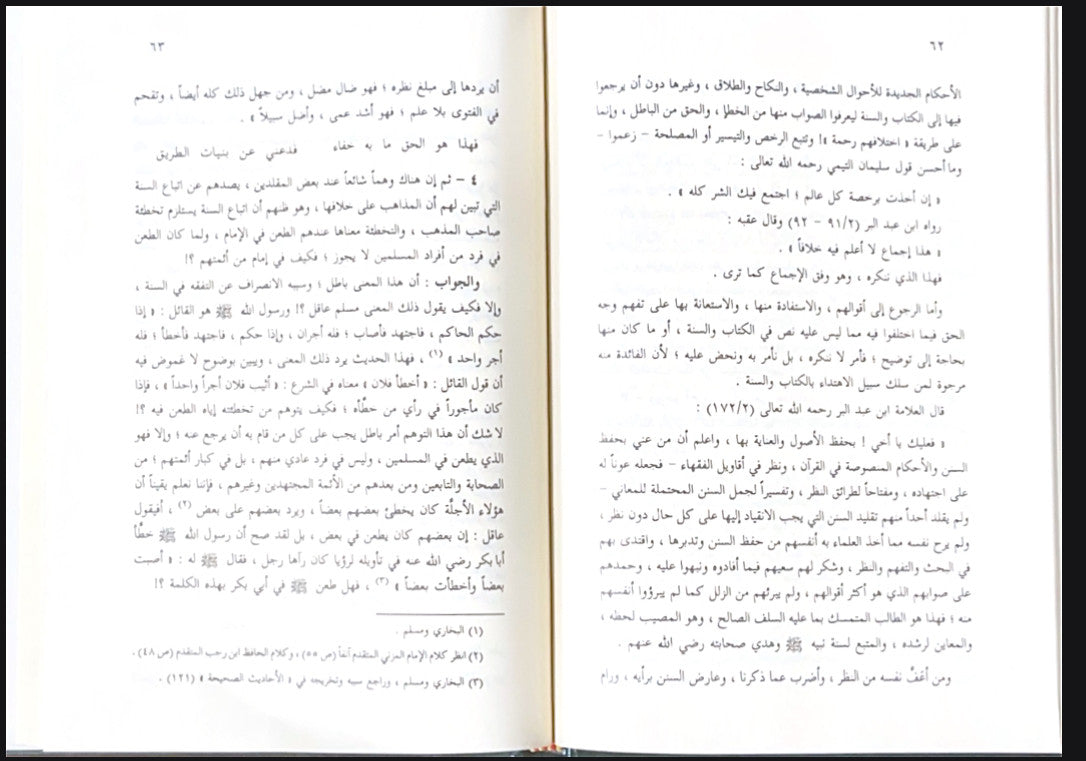 ٦٢
الأحكام الجديدة للأحوال الشخصية ، والنكاح والطلاق ، وغيرها دون أن يرجعوا
فيها إلى الكتاب والسنة ليعرفوا الصواب منها من الخطإ ، والحق من الباطل ، وإنما
على طريقة « اختلافهم رحمة »! وتتبع الرخص والتيسير أو المصلحة – زعموا –
وما أحسن قول سليمان التيمي رحمه الله تعالى :
« إن أخذت برخصة كل عالم ؛ اجتمع فيك الشر كله » .
رواه ابن عبد البر (٩١/٢ – ٩٢) وقال عقبه :
« هذا إجماع لا أعلم فيه خلافاً » .
فهذا الذي ننكره ، وهو وفق الإجماع كما ترى .
وأما الرجوع إلى أقوالهم ، والاستفادة منها ، والاستعانة بها على تفهم وجه
الحق فيما اختلفوا فيه مما ليس عليه نص في الكتاب والسنة ، أو ما كان منها
بحاجة إلى توضيح ؛ فأمر لا ننكره ، بل نأمر به ونحض عليه ؛ لأن الفائدة منه
مرجوة لمن سلك سبيل الاهتداء بالكتاب والسنة .
قال العلامة ابن عبد البر رحمه الله تعالى (١٧٢/٢) :
« فعليك يا أخي ! بحفظ الأصول والعناية بها ، واعلم أن من عني بحفظ
السنن والأحكام المنصوصة في القرآن ، ونظر في أقاويل الفقهاء – فجعله عوناً له
على اجتهاده ، ومفتاحاً لطرائق النظر ، وتفسيراً لجمل السنن المحتملة للمعاني –
ولم يقلد أحداً منهم تقليد السنن التي يجب الانقياد إليها على كل حال دون نظر ،
ولم يرح نفسه مما أخذ العلماء به أنفسهم من حفظ السنن وتدبرها ، واقتدى بهم
في البحث والتفهم والنظر ، وشكر لهم سعيهم فيما أفادوه ونبهوا عليه ، وحمدهم
على صوابهم الذي هو أكثر أقوالهم ، ولم يبرئهم من الزلل كما لم يبرؤوا أنفسهم
منه ؛ فهذا هو الطالب المتمسك بما عليه السلف الصالح ، وهو المصيب لحظه ،
والمعاين لرشده ، والمتبع لسنة نبيه ﷺ وهدي صحابته رضي الله عنهم .
ومن أعَفَّ نفسه من النظر ، وأضرب عما ذكرنا ، وعارض السنن برأيه ، ورام
٦٣
أن يردها إلى مبلغ نظره ؛ فهو ضال مضل ، ومن جهل ذلك كله أيضاً ، وتقحم
في الفتوى بلا علم ؛ فهو أشد عمى ، وأضل سبيلاً » .
فهذا هو الحق ما به خفاء فدعني عن بنيات الطريق
٤ – ثم إن هناك وهماً شائعاً عند بعض المقلدين ، يصدهم عن اتباع السنة
التي تبين لهم أن المذاهب على خلافها ، وهو ظنهم أن اتباع السنة يستلزم تخطئة
صاحب المذهب ، والتخطئة معناها عندهم الطعن في الإمام ، ولما كان الطعن
في فرد من أفراد المسلمين لا يجوز ؛ فكيف في إمام من أئمتهم ؟!
والجواب : أن هذا المعنى باطل ؛ وسببه الانصراف عن التفقه في السنة ،
وإلا فكيف يقول ذلك المعنى مسلم عاقل ؟! ورسول الله ﷺ هو القائل : « إذا
حكم الحاكم ، فاجتهد فأصاب ؛ فله أجران ، وإذا حكم ، فاجتهد فأخطأ ؛ فله
أجر واحد » (١) ، فهذا الحديث يرد ذلك المعنى ، ويبين بوضوح لا غموض فيه
أن قول القائل : « أخطأ فلان » معناه في الشرع : « أثيب فلان أجراً واحداً » ، فإذا
كان مأجوراً في رأي من خطَّأه ؛ فكيف يتوهم من تخطئته إياه الطعن فيه ؟!
لا شك أن هذا التوهم أمر باطل يجب على كل من قام به أن يرجع عنه ؛ وإلا فهو
الذي يطعن في المسلمين ، وليس في فرد عادي منهم ، بل في كبار أئمتهم ؛ من
الصحابة والتابعين ومن بعدهم من الأئمة المجتهدين وغيرهم ، فإننا نعلم يقيناً أن
هؤلاء الأجلَّة كان يخطئ بعضهم بعضاً ، ويرد بعضهم على بعض (٢) ، أفيقول
عاقل : إن بعضهم كان يطعن في بعض ، بل لقد صح أن رسول الله ﷺ خطَّأ
أبا بكر رضي الله عنه في تأويله لرؤيا كان رآها رجل ، فقال ﷺ له : « أصبت
بعضاً وأخطأت بعضاً » (٣) ، فهل طعن ﷺ في أبي بكر بهذه الكلمة ؟!
(١) البخاري ومسلم .
(٢) انظر كلام الإمام المزني المتقدم آنفاً (ص ٥٥) ، وكلام الحافظ ابن رجب المتقدم (ص ٤٨) .
(٣) البخاري ومسلم ، وراجع سببه وتخريجه في « الأحاديث الصحيحة » (١٢١) .